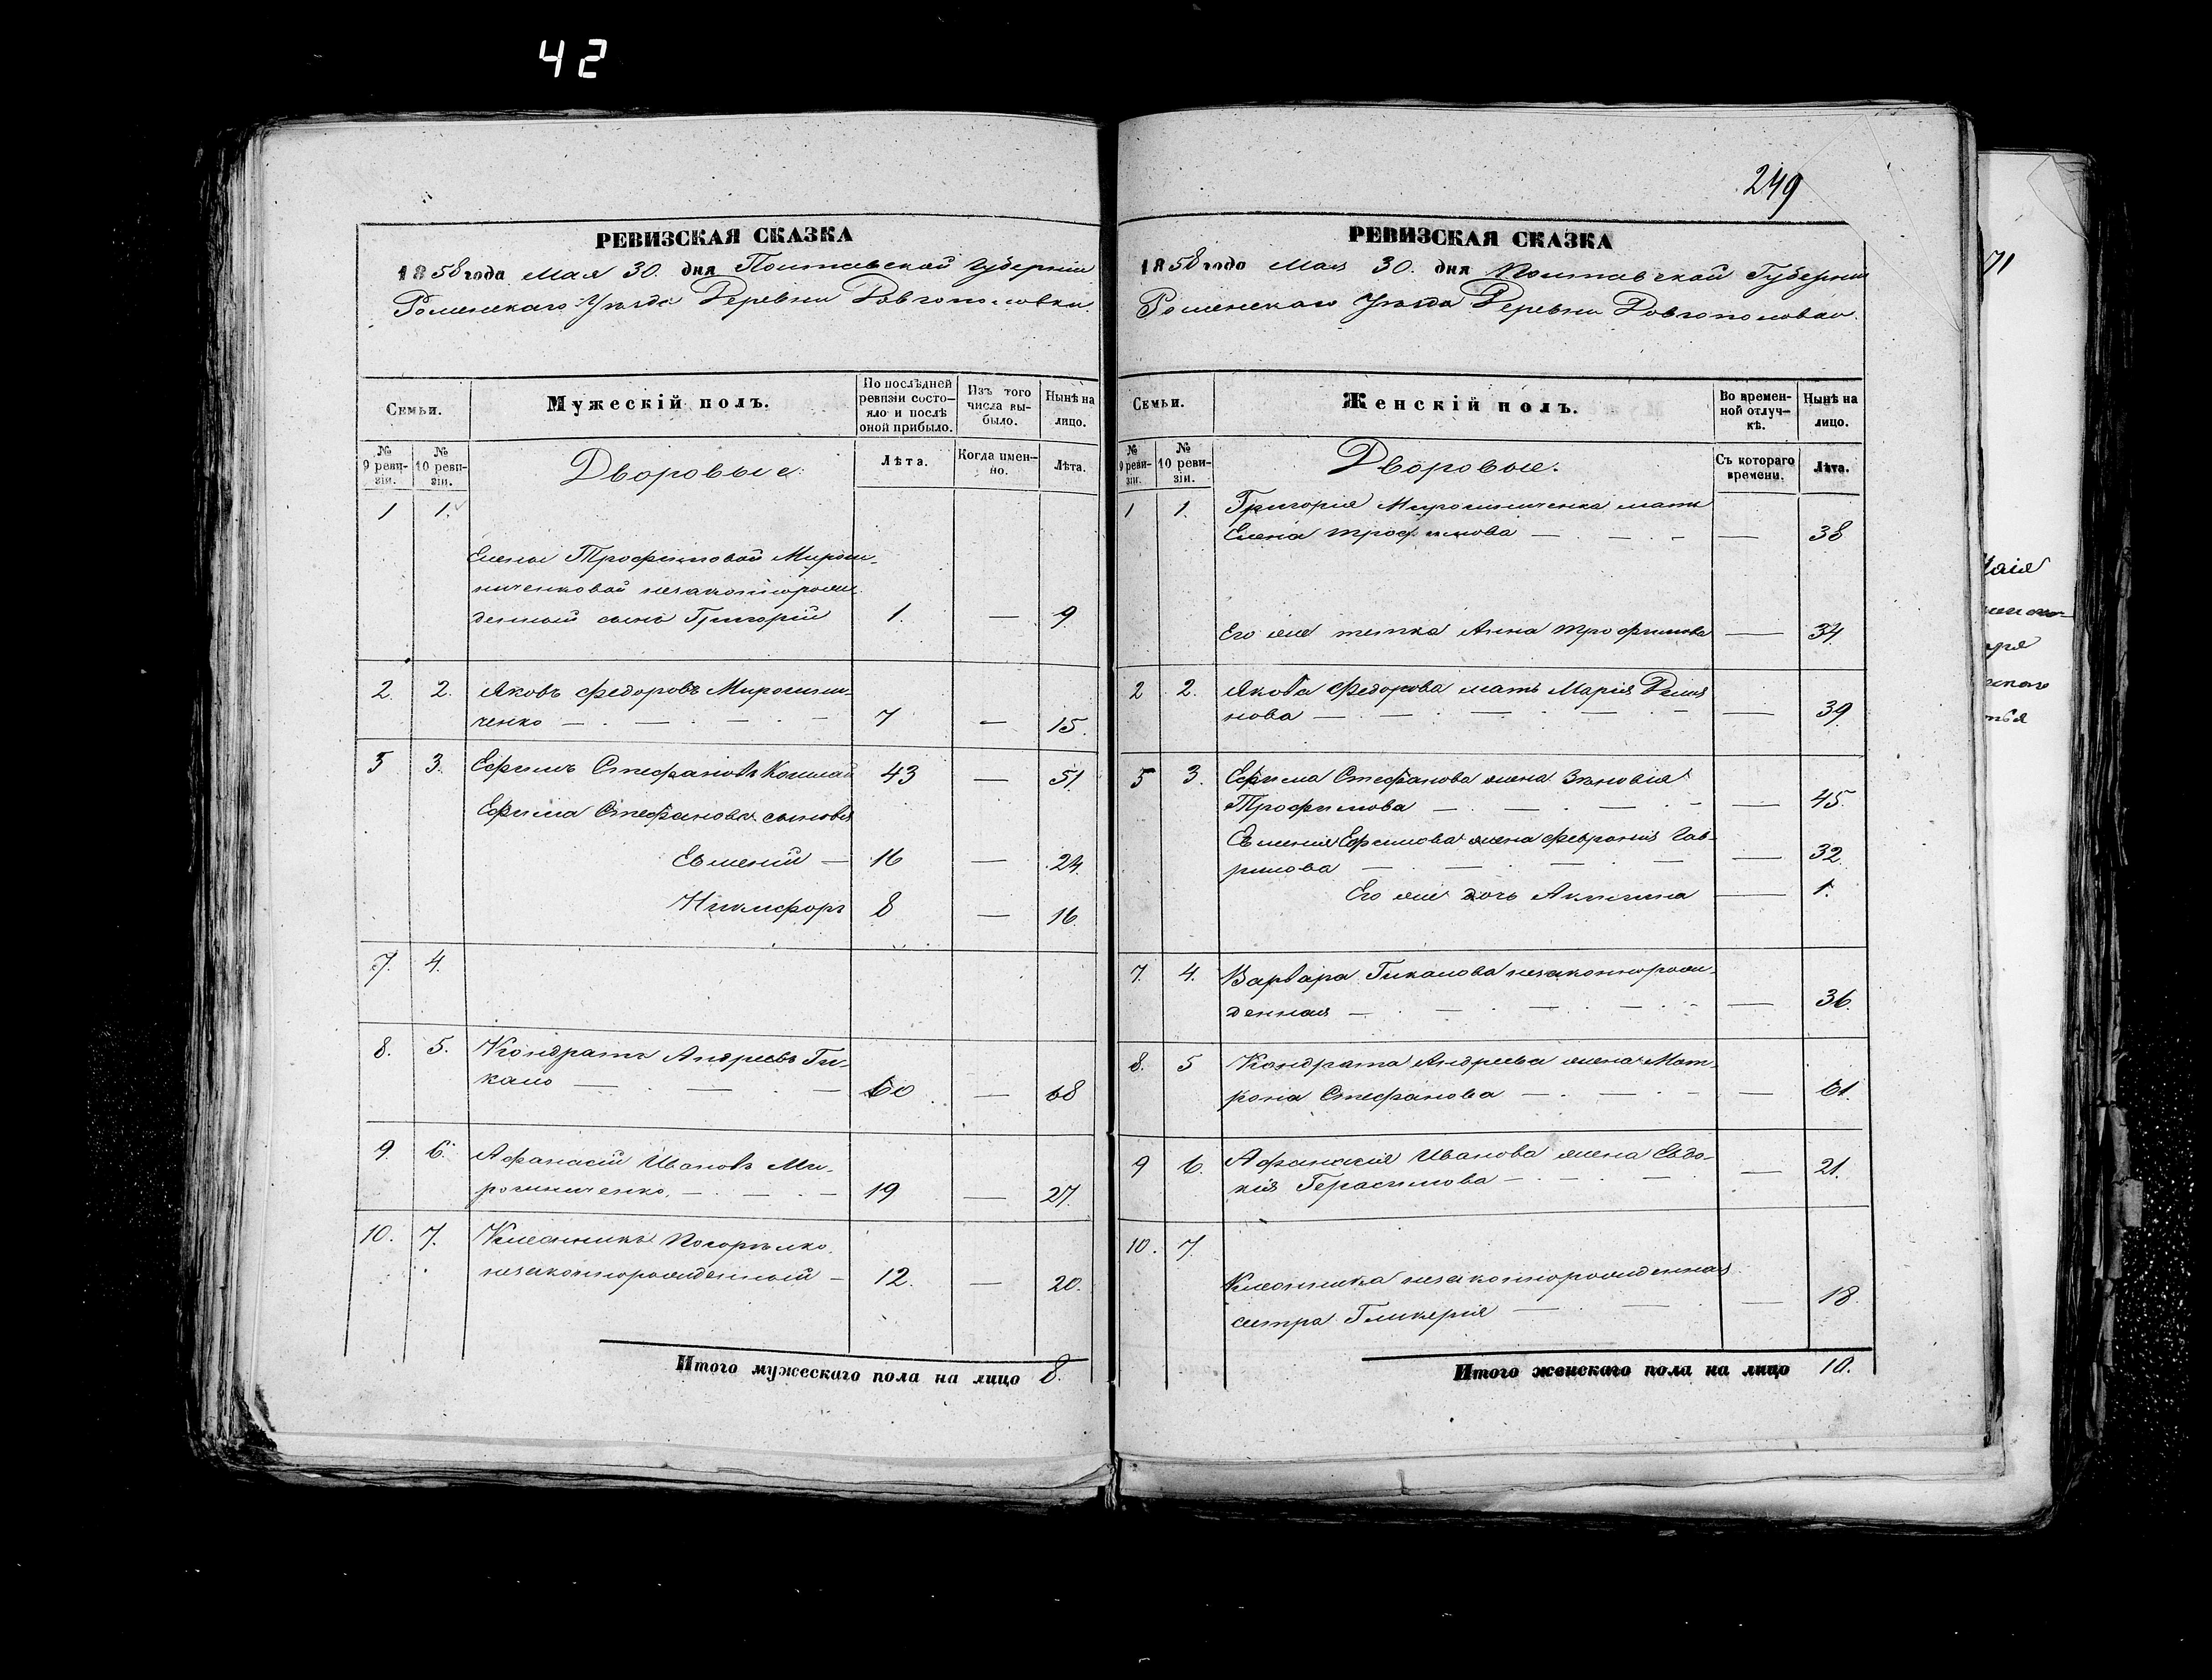 42
РЕВИЗСКАЯ СКАЗКА
1858 года Мая 30. дня Полтавской Губерніи
Роменскаго Уѣзда Деревни Довгополовки.
Семьи.
Мужескій полъ.
По послѣдней ревизіи состояло и послѣ оной прибыло.
Изъ того числа выбыло.
Нынѣ на лицо.
№ 9 ревизіи.
№ 10 ревизіи.
Дворовые
Лѣта.
Когда именно.
Лѣта.
1 1.
Елены Трофимовой Мирош-
ниченковой незаконнорож-
денный сынъ Григорій 1. — 9.
2. 2. Яковъ Федоровъ Мирошни-
ченко — 7 — 15.
5 3. Ефимъ Стефановъ 43 — 51.
Ефима Стефанова сыновья
Евмений — 16 — 24.
Никифоръ 8 — 16.
7. 4.
8. 5. Кондратъ Андреевъ Ги-
кало — 60 — 68
9. 6. Афанасій Ивановъ Ми-
рошниченко. — 19 — 27.
10. 7. Погорѣлко
незаконнорожденный — 12. — 20.
Итого мужескаго пола на лицо 8.
249
РЕВИЗСКАЯ СКАЗКА
1858 года Мая 30. дня Полтавской Губерніи
Роменскаго Уѣзда Деревни Довгополовки.
Семьи.
Женскій полъ.
Во временной отлучкѣ.
Нынѣ на лицо.
№ 9 ревизіи.
№ 10 ревизіи.
Дворовые.
Съ котораго времени.
Лѣта.
1 1. Григорія Мирошниченка мать
Елена Трофимова — — 38
Его же тетка Анна Трофимова — 34.
2 2. Якова Федорова мать Марія Демя
нова — — 39.
5 3. Ефима Стефанова жена Зѣновія
Трофимова — — 45.
Евменія Ефимова жена Февронія Гав-
рилова — — 32.
Его же дочь Акилина — 1.
7. 4. Варвара Гикалова незаконнорож-
денная — — 36.
8. 5 Кондрата Андреева жена Мат-
рона Стефанова — — 61.
9 6. Афанасія Иванова жена Евдо-
кія Герасимова — — 21.
10. 7.
незаконнорожденная
сестра Гликерія — — 18.
Итого женскаго пола на лицо 10.
71